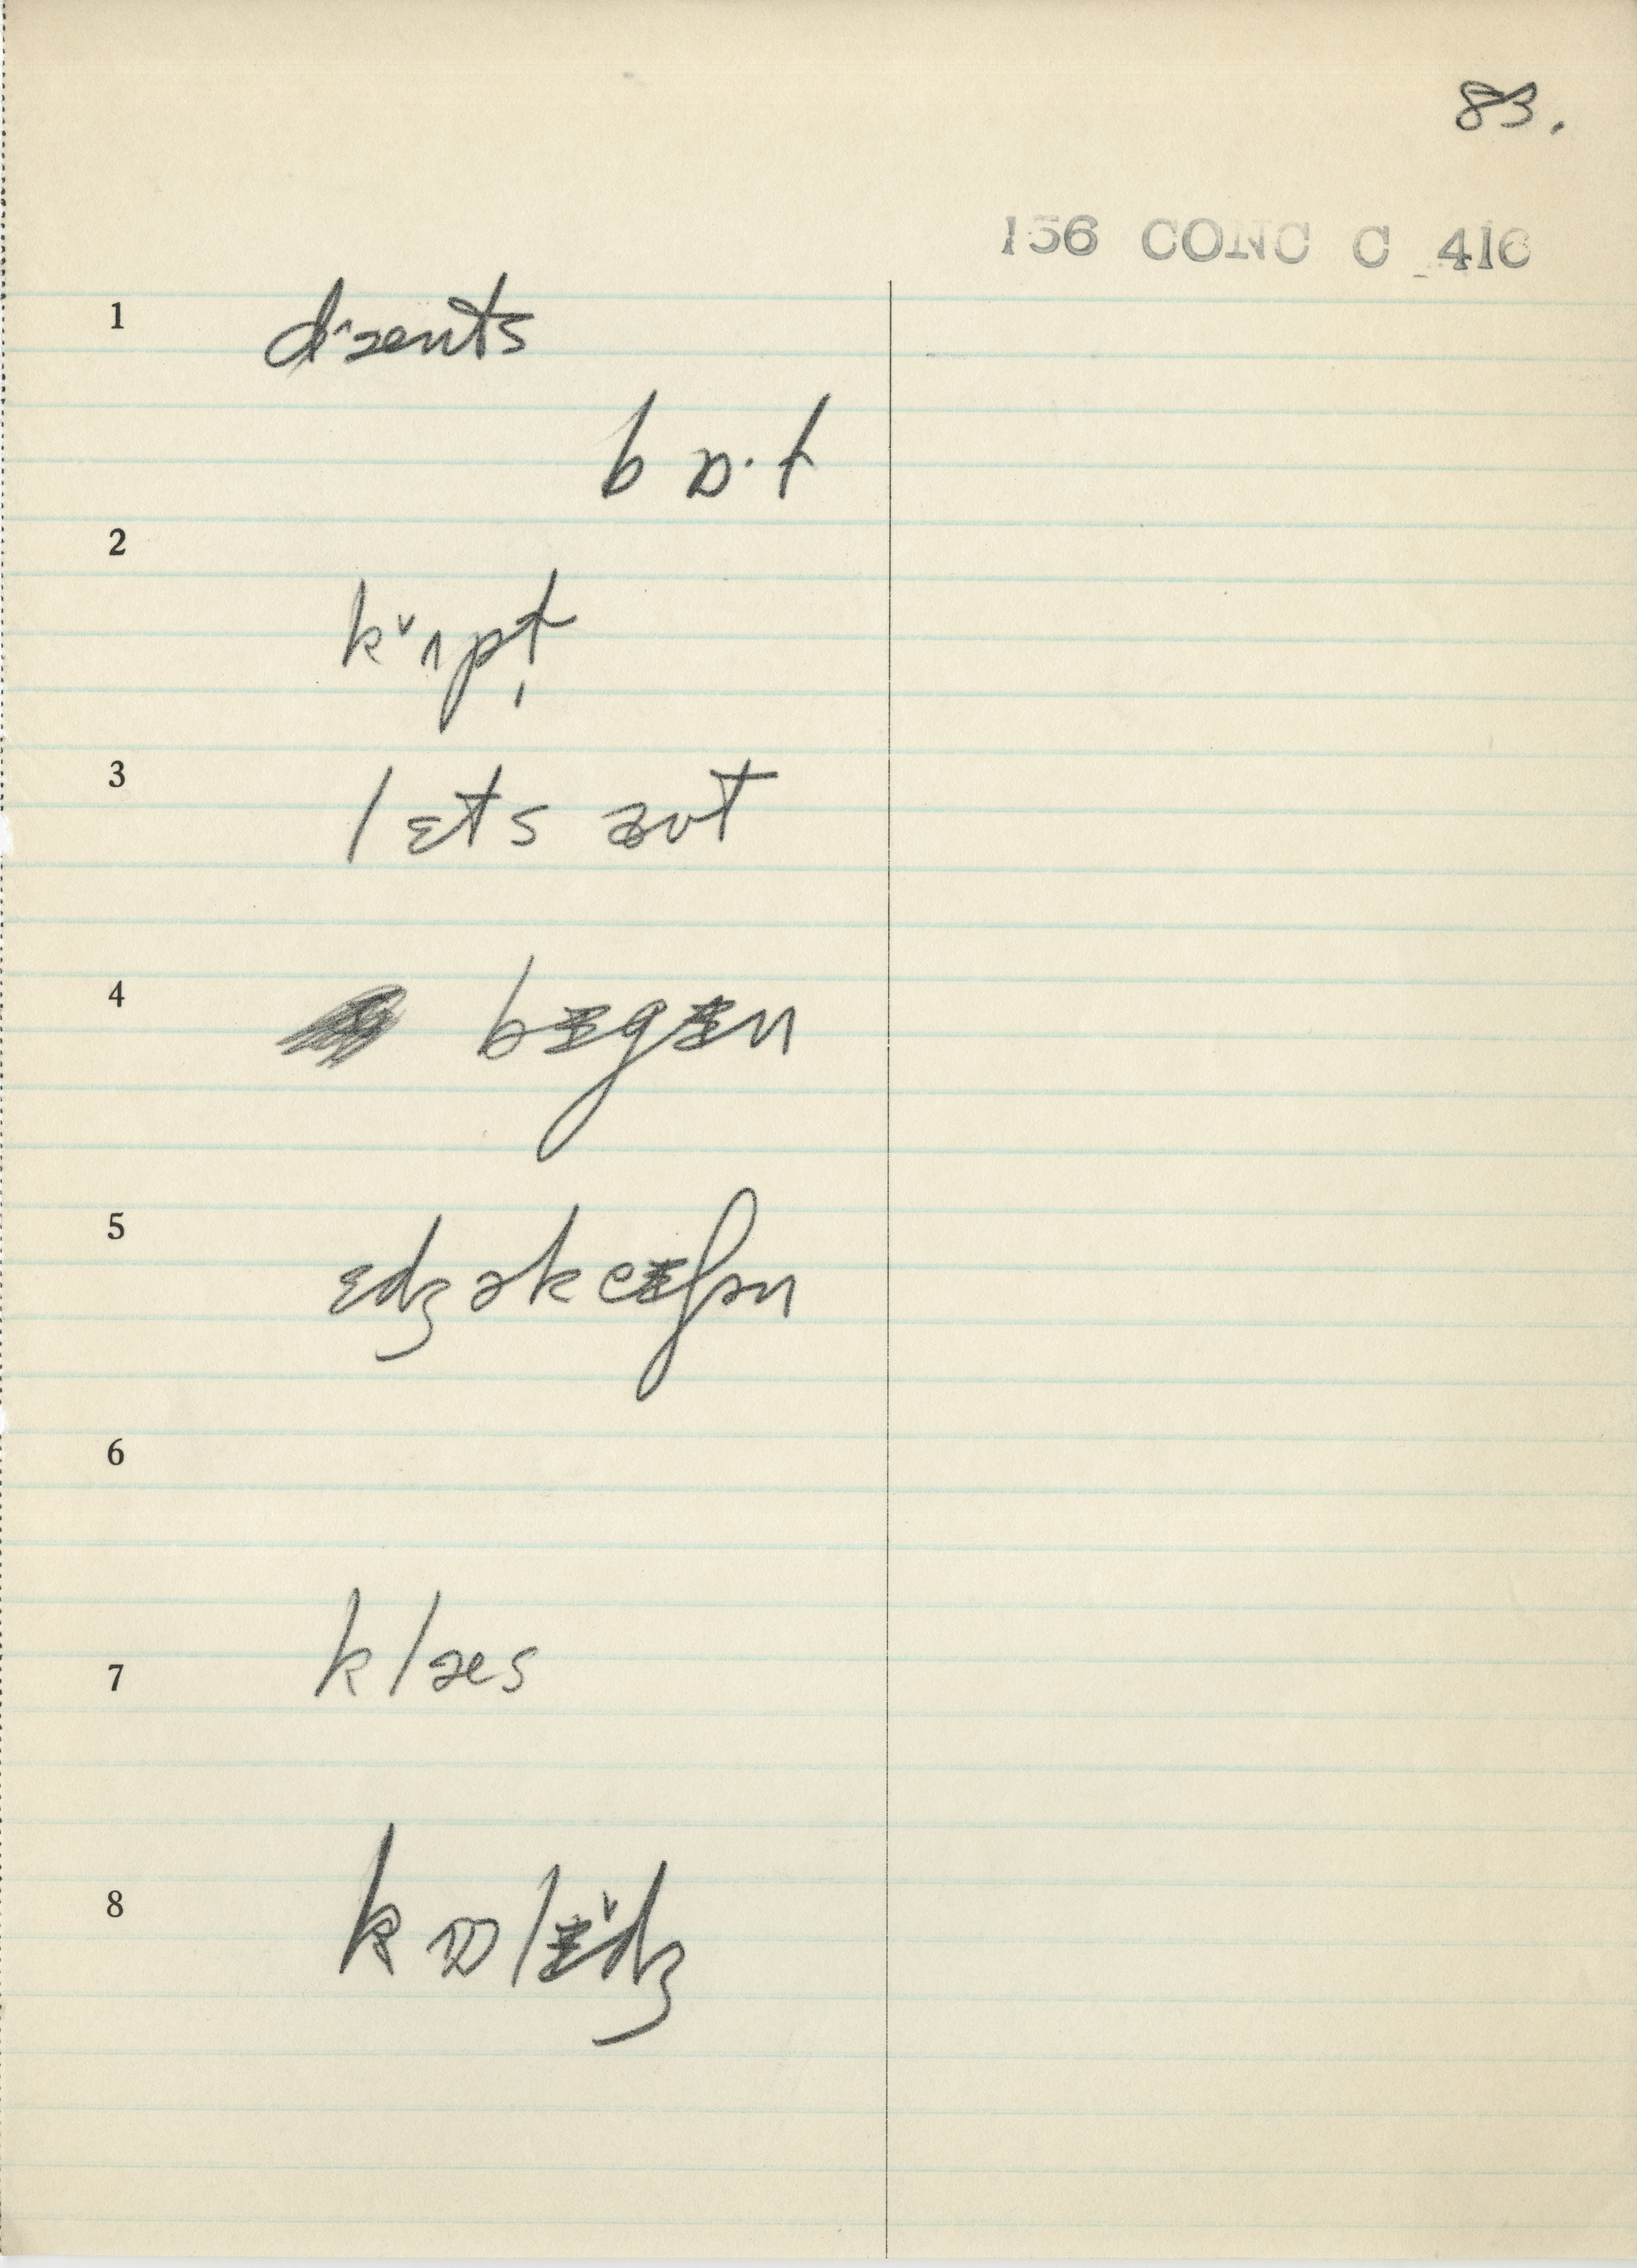 83.
156 CONC C 416
1 dˆzænts
bɒ·t
2 kˇʌpt̩
3 lɛts aʊt
4 bɪgɪn
5 ɛdʒəkeɪʃən
6
7 klæs
8 kɒlɪˇdʒ